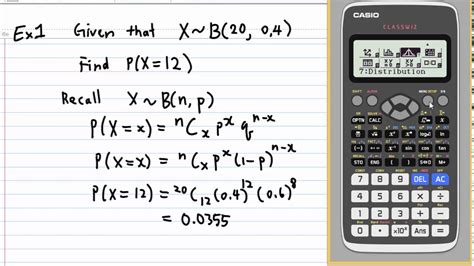 Ex1 Given that X~B(20, 0.4)
Find P(X=12)
Recall X~B(n, p)
P(X=x) = ⁿCₓ pˣ qⁿ⁻ˣ
P(X=x) = ⁿCₓ pˣ (1-p)ⁿ⁻ˣ
P(X=12) = ²⁰C₁₂ (0.4)¹² (0.6)⁸
= 0.0355
CASIO
CLASSWIZ
7:Distribution
SHIFT ALPHA MENU SETUP ON
OPTN CALC
sin cos tan
STO ENG ( ) S⇔D M+
7 8 9 DEL AC
4 5 6 × ÷
1 2 3 + -
0 . ×10ˣ Ans =